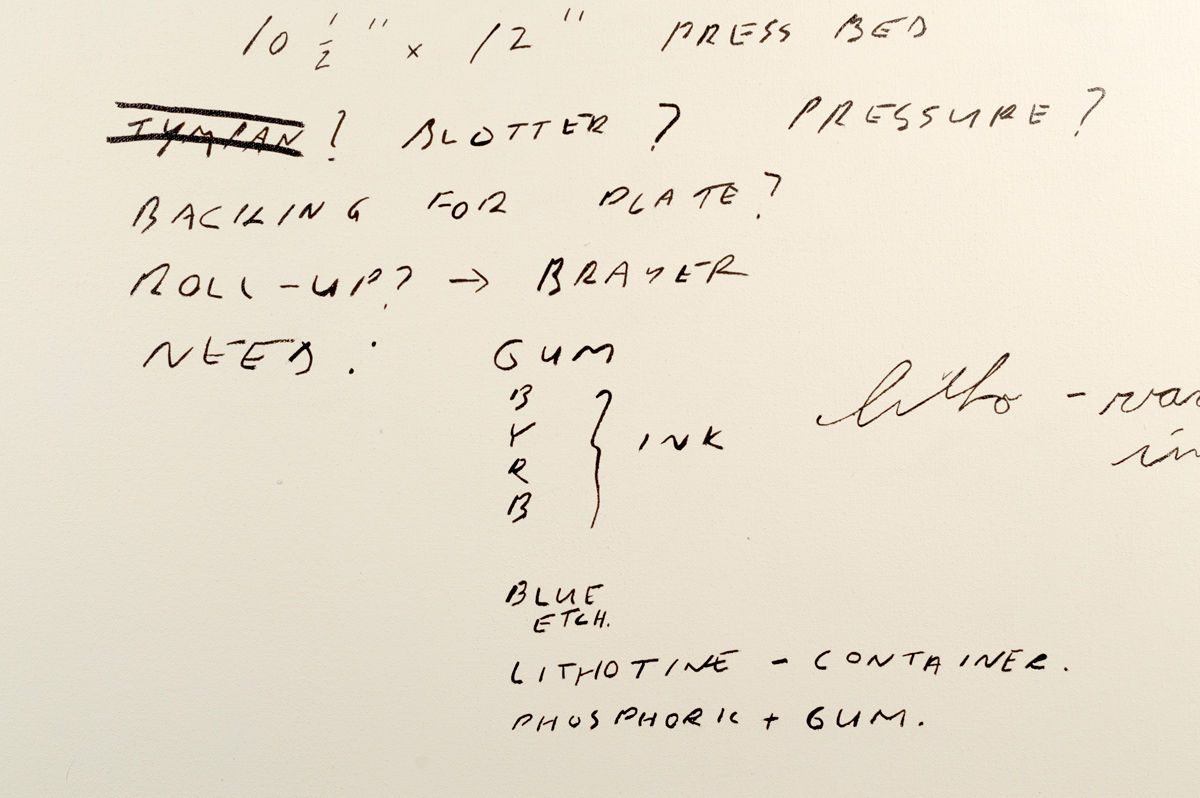 10 1/2" x 12" PRESS BED
TYMPAN? BLOTTER? PRESSURE?
BACKING FOR PLATE?
ROLL-UP? → BRAYER
NEED: GUM
B
Y
R
B
} INK
litho -
BLUE
ETCH.
LITHOTINE - CONTAINER.
PHOSPHORIC + GUM.